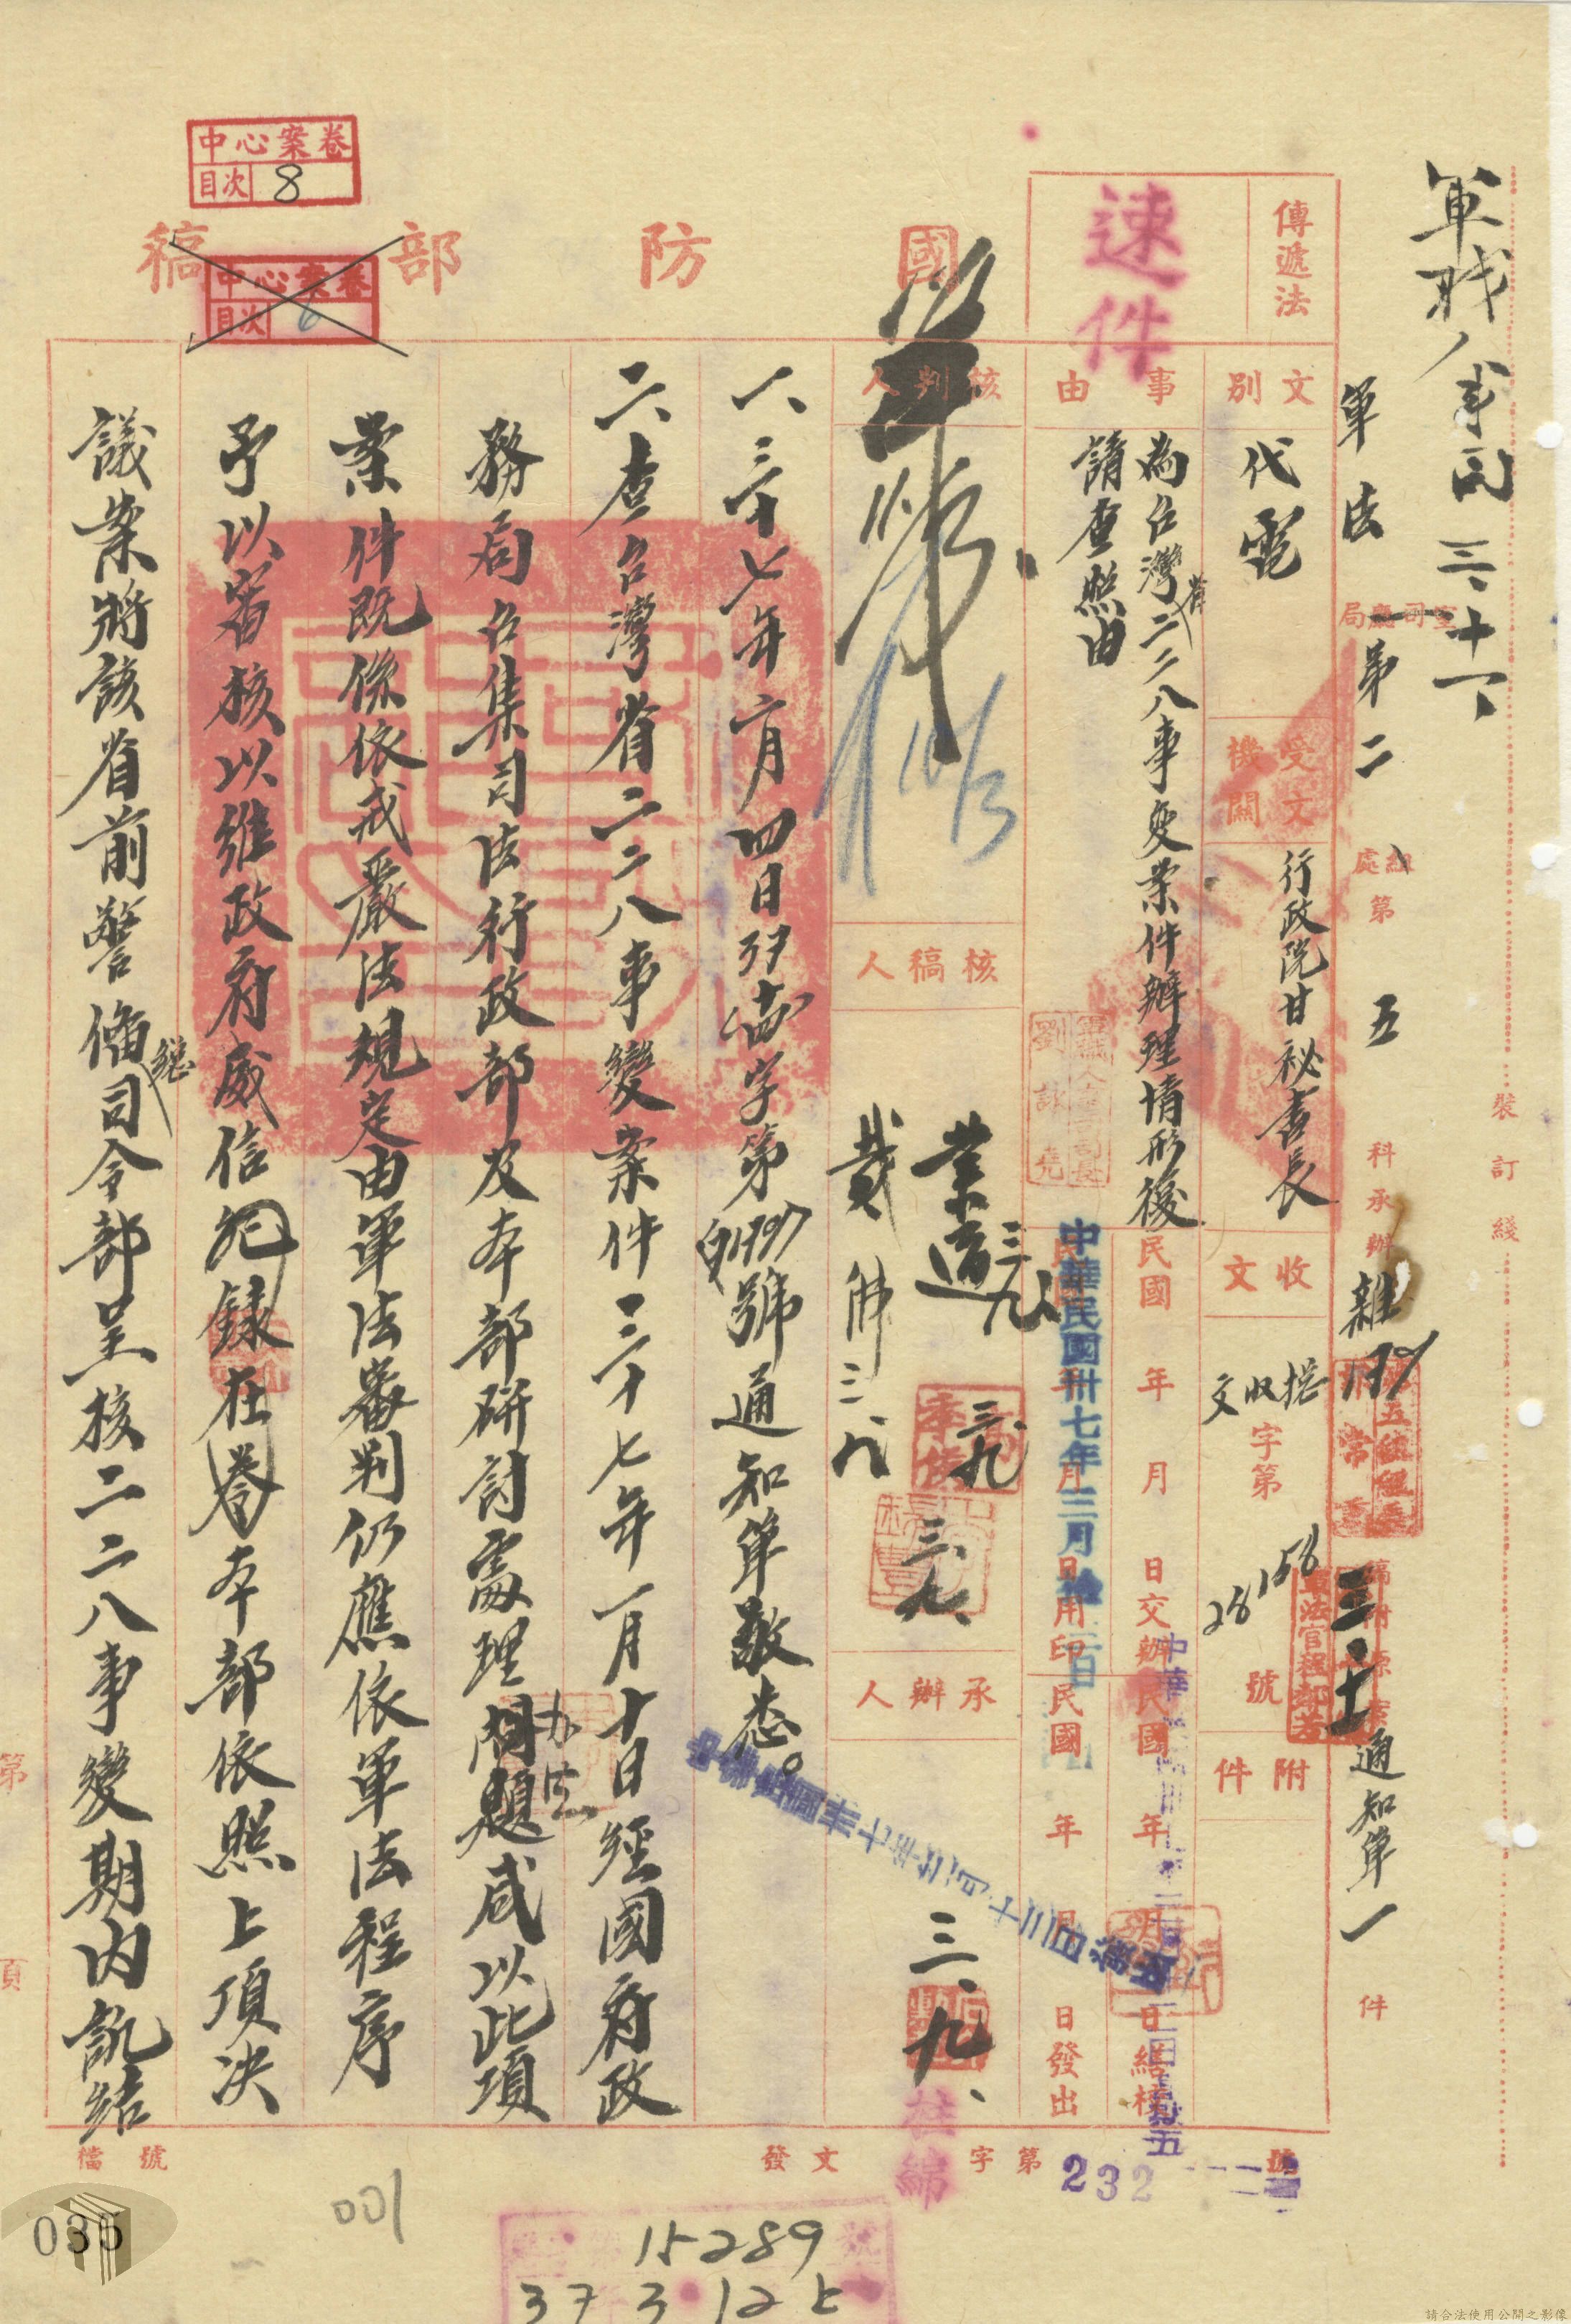 中心案卷
目次 8
中心案卷
目次 6
國防部稿
軍法局第二處第五科承辦
通知單一件
裝訂綫
傳遞法
速件
文別
代電
受文機關
行政院甘秘書長
收文
收文
字第
28158
號
附件
事由
為台灣省二二八事變案件辦理情形復
請查照由
民國 年 月 日交辦
民國 年 月 日繕校
中華民國卅七年三月
民國 年 月 日用印
民國 年 月 日發出
核判人
核稿人
三.九
三.九
三.九
承辦人
三.九.
一、三十七年二月四日
字第
號通知單敬悉。
二、查台灣省二二八事變案件三十七年一月十日經國府政
務局召集司法行政部及本部研討處理辦法咸以此項
案件既係依戒嚴法規定由軍法審判仍應依軍法程序
予以審核以維政府威信紀錄在卷本部依照上項決
議案將該省前警備總司令部呈核二二八事變期內訊結
檔號
發文
字第
232
號
第
頁
001
035
15289
37 3 12 上
請合法使用公開之影像